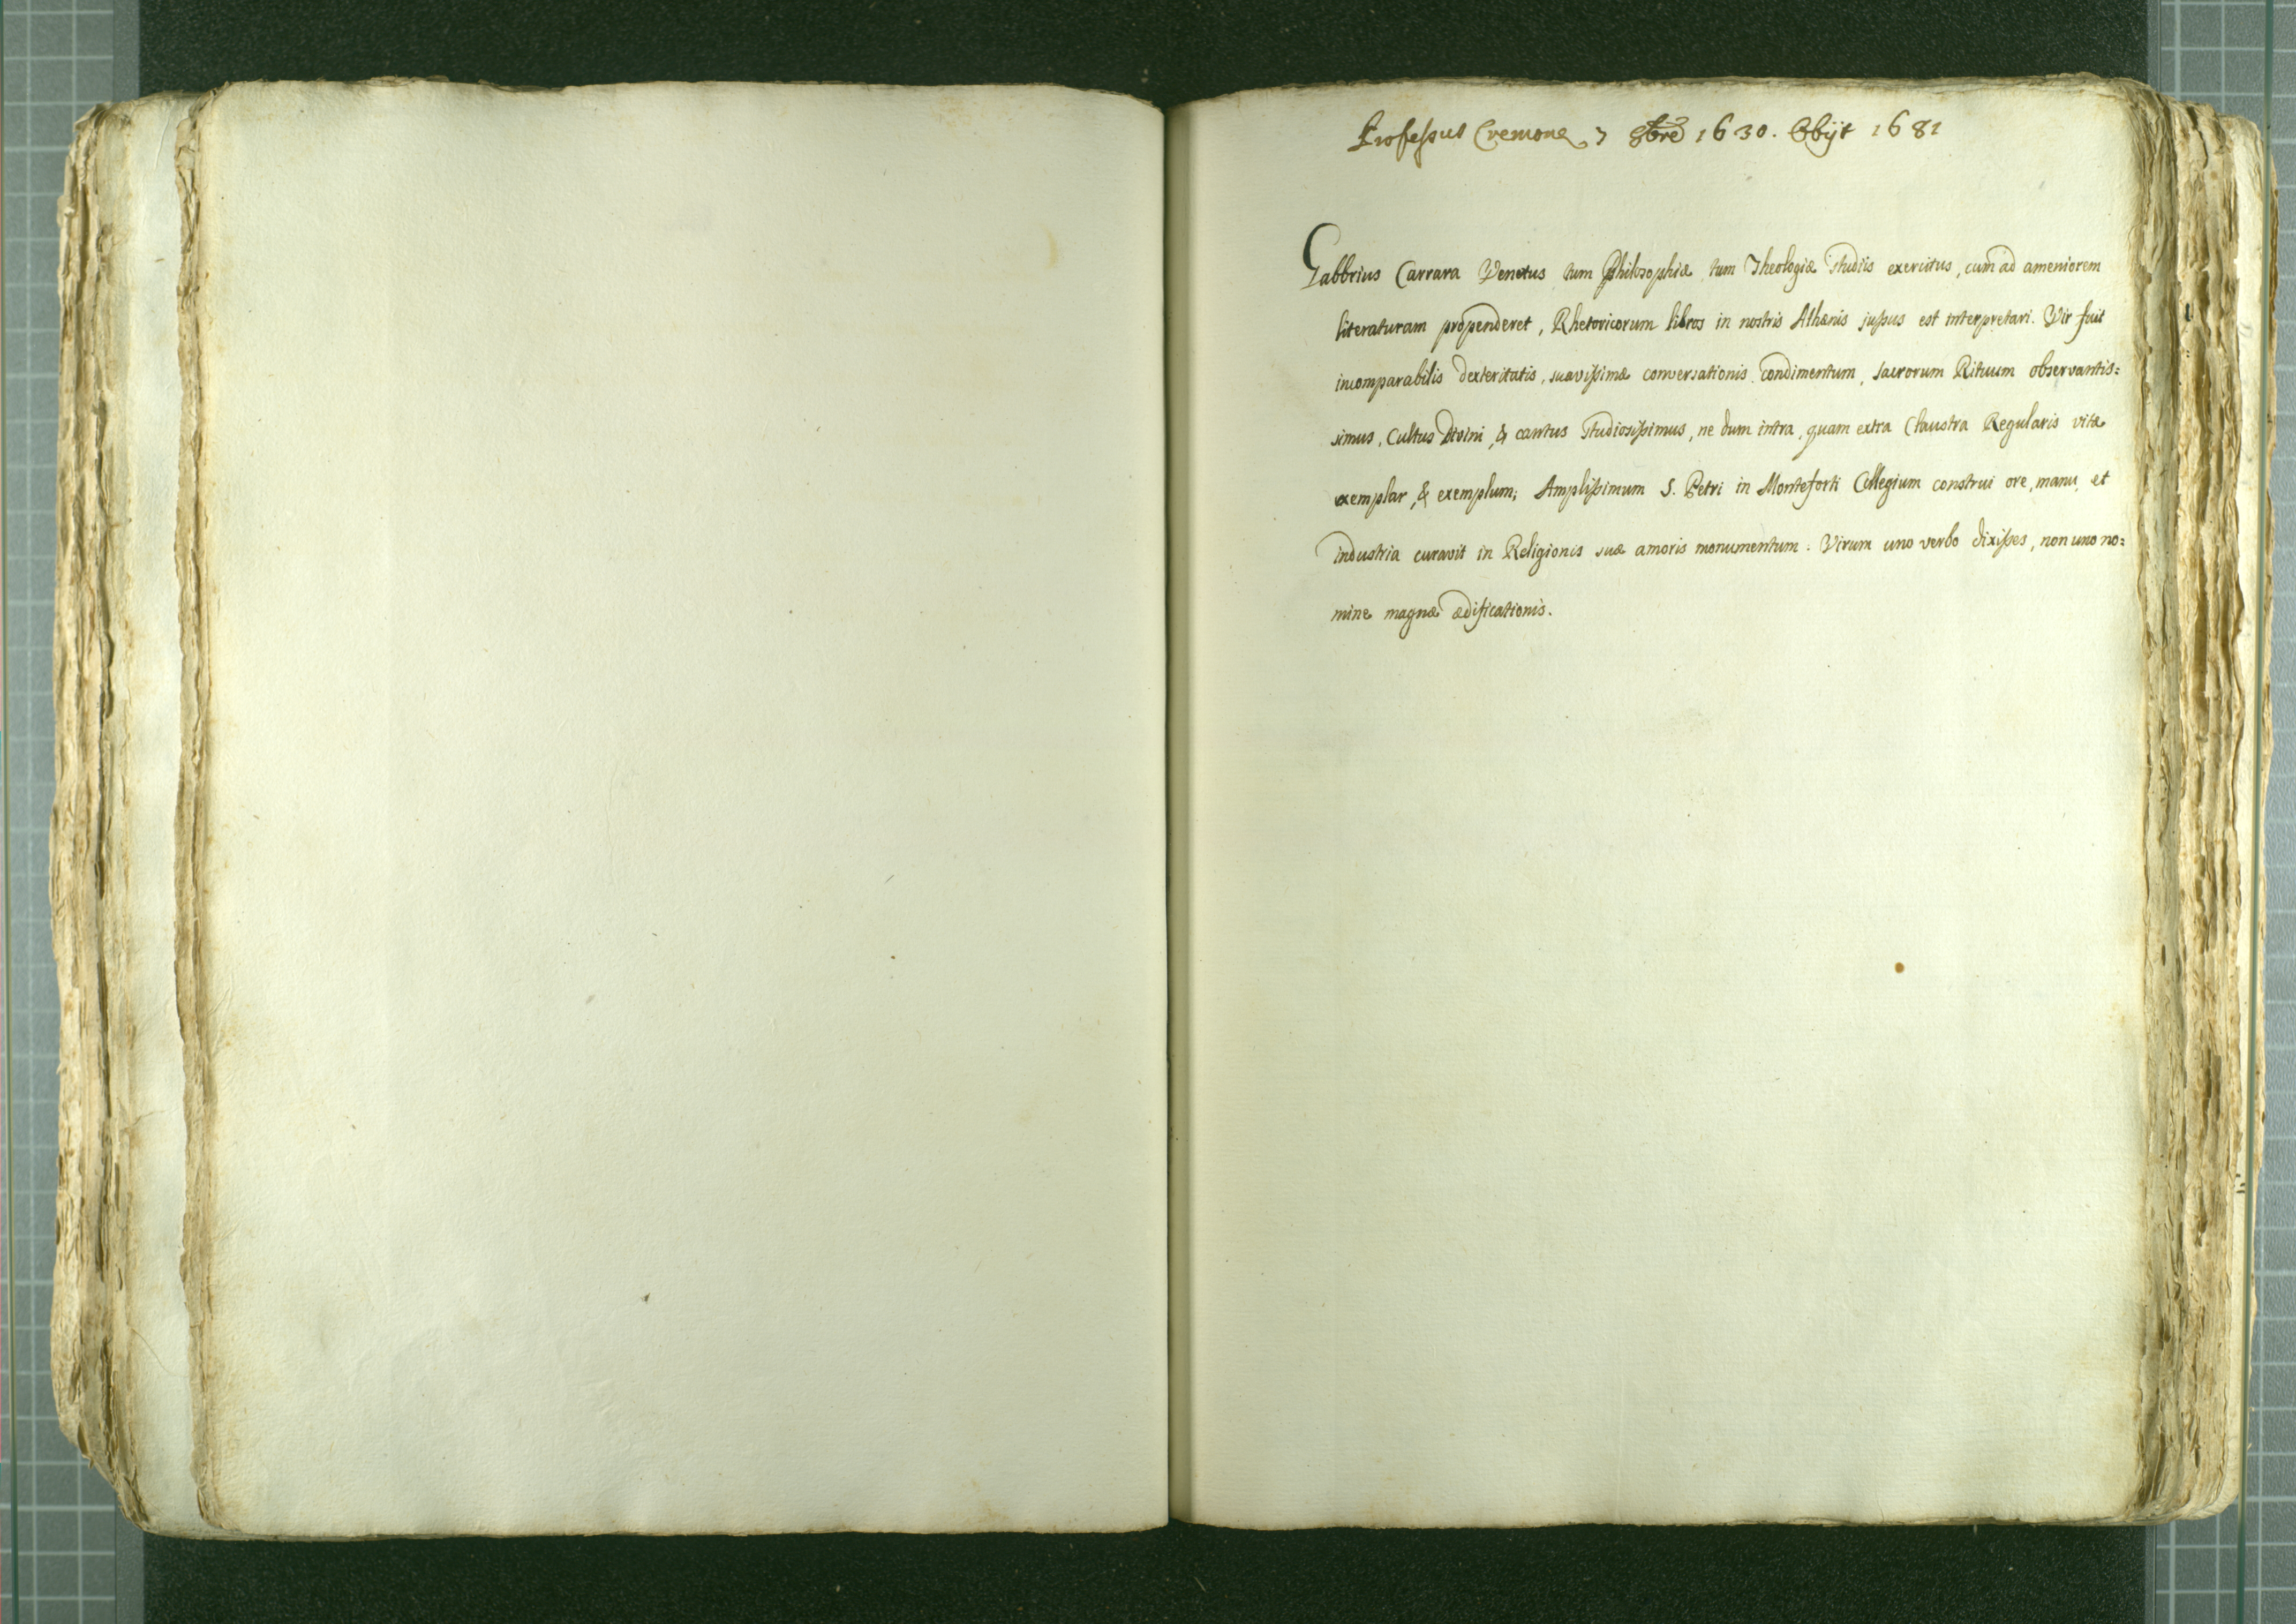 Professus Cremonę 7 8bre 1630. Obijt 1681
Gabbrius Carrara Venetus tum Philosophiæ tum Theologiæ studiis exercitus, cum ad ameniorem
literaturam propenderet, Rhetoricorum libros in nostris Athænis jussus est interpretari. Vir fuit
incomparabilis dexteritatis, suavissimæ conversationis condimentum, sacrorum Rituum observantis=
simus, Cultus Divini, & cantus studiosissimus, ne dum intra, quam extra Claustra Regularis vitæ
exemplar, & exemplum; Amplissimum S. Petri in Monteforti Collegium construi ore, manu, et
industria curavit in Religionis suæ amoris monumentum: Virum uno verbo dixisses, non uno no=
mine magnæ ædificationis.